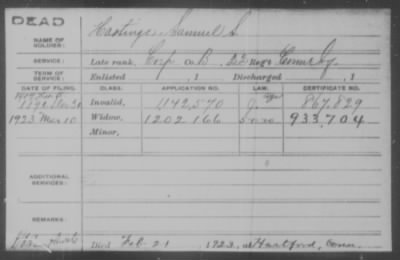 DEAD
Hastings, Samuel S.
NAME OF SOLDIER:
SERVICE: Late rank, Corp Co B, 22 Reg't Conn Inf.
TERM OF SERVICE: Enlisted , 1 Discharged , 1
DATE OF FILING. CLASS. APPLICATION NO. LAW. CERTIFICATE NO.
Invalid, 1142,570 867,829
1923 Mar 10 Widow, 1202 166 933,704
Minor,
ADDITIONAL SERVICES:
REMARKS:
Died Feb 21 1923, at Hartford, Conn.